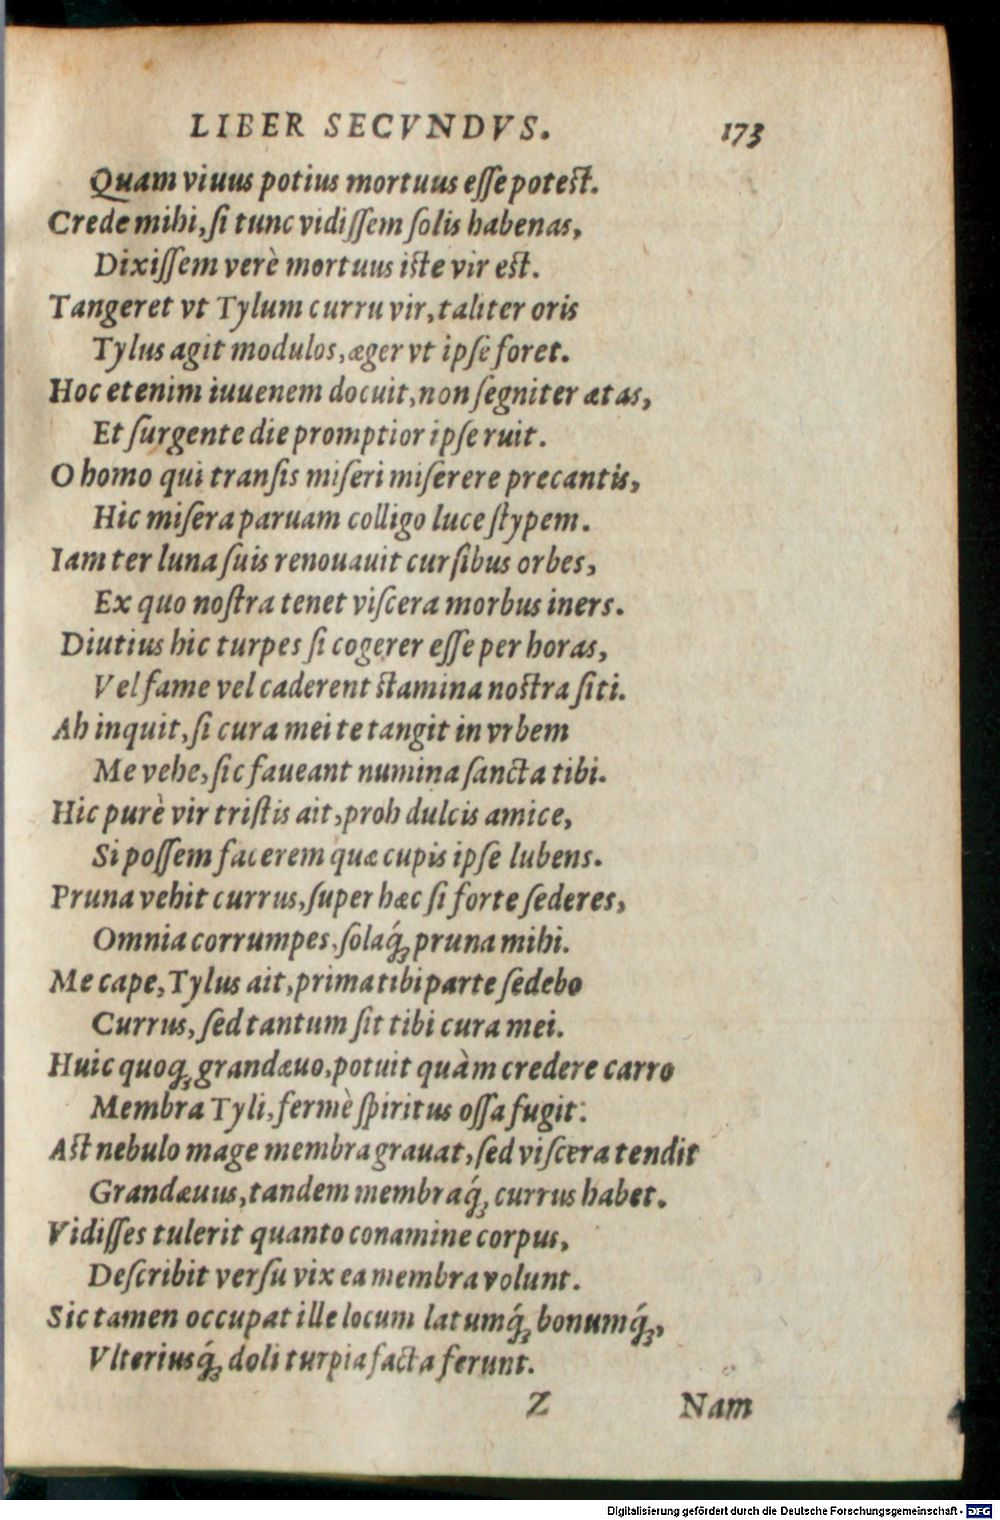 LIBER SECVNDVS. 173
Quam viuus potius mortuus esse potest.
Crede mihi, si tunc vidissem solis habenas,
Dixissem verè mortuus iste vir est.
Tangeret vt Tylum curru vir, taliter oris
Tylus agit modulos, æger vt ipse foret.
Hoc etenim iuuenem docuit, non segniter ætas,
Et surgente die promptior ipse ruit.
O homo qui transis miseri miserere precantis,
Hic misera paruam colligo luce stypem.
Iam ter luna suis renouauit cursibus orbes,
Ex quo nostra tenet viscera morbus iners.
Diutius hic turpes si cogerer esse per horas,
Vel fame vel caderent stamina nostra siti.
Ah inquit, si cura mei te tangit in vrbem
Me vehe, sic faueant numina sancta tibi.
Hic purè vir tristis ait, proh dulcis amice,
Si possem facerem quæ cupis ipse lubens.
Pruna vehit currus, super hæc si forte sederes,
Omnia corrumpes, solaq́ꝫ pruna mihi.
Me cape, Tylus ait, prima tibi parte sedebo
Currus, sed tantum sit tibi cura mei.
Huic quoqꝫ grandæuo, potuit quàm credere carro
Membra Tyli, fermè spiritus ossa fugit.
Ast nebulo mage membra grauat, sed viscera tendit
Grandæuus, tandem membraq́ꝫ currus habet.
Vidisses tulerit quanto conamine corpus,
Describit versu vix ea membra volunt.
Sic tamen occupat ille locum latumq́ꝫ bonumq́ꝫ,
Vlteriusq́ꝫ doli turpia facta ferunt.
Z Nam
Digitalisierung gefördert durch die Deutsche Forschungsgemeinschaft - DFG